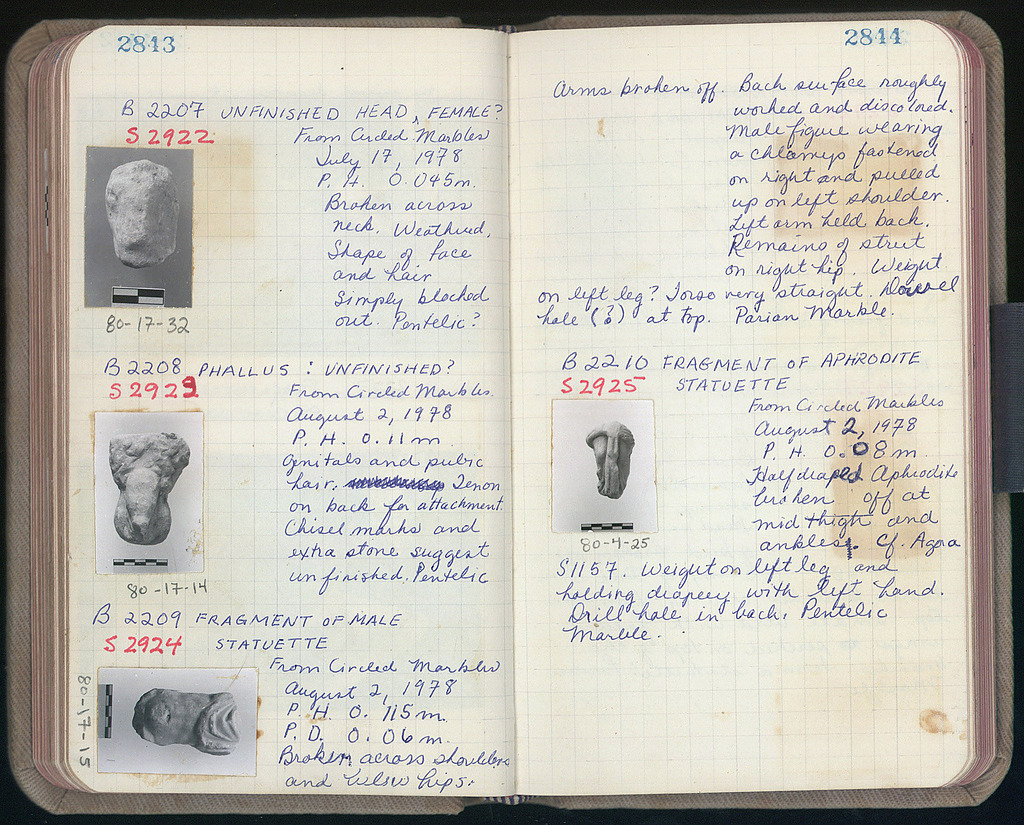 2843
B 2207 UNFINISHED HEAD, FEMALE?
S 2922
From Circled Marbles
July 17, 1978
P. H. 0.045m.
Broken across
neck. Weathered.
Shape of face
and hair
simply blocked
out. Pentelic?
80-17-32
B 2208 PHALLUS : UNFINISHED?
S 2923
From Circled Marbles.
August 2, 1978
P. H. 0.11 m.
Genitals and pubic
hair. Tenon
on back for attachment.
Chisel marks and
extra stone suggest
unfinished. Pentelic
80-17-14
B 2209 FRAGMENT OF MALE
S 2924 STATUETTE
From Circled Marbles
August 2, 1978
P. H. 0.115 m.
P. D. 0.06 m.
Broken across shoulders
and below hips.
80-17-15
2844
Arms broken off. Back surface roughly
worked and discolored.
Male figure wearing
a chlamys fastened
on right and pulled
up on left shoulder.
Left arm held back.
Remains of strut
on right hip. Weight
on left leg? Torso very straight. Dowel
hole (?) at top. Parian Marble.
B 2210 FRAGMENT OF APHRODITE
S 2925 STATUETTE
From Circled Marbles
August 2, 1978
P. H. 0.08 m.
Half draped Aphrodite
broken off at
mid thigh and
ankles. Cf. Agora
80-4-25
S1157. Weight on left leg and
holding drapery with left hand.
Drill hole in back. Pentelic
Marble.